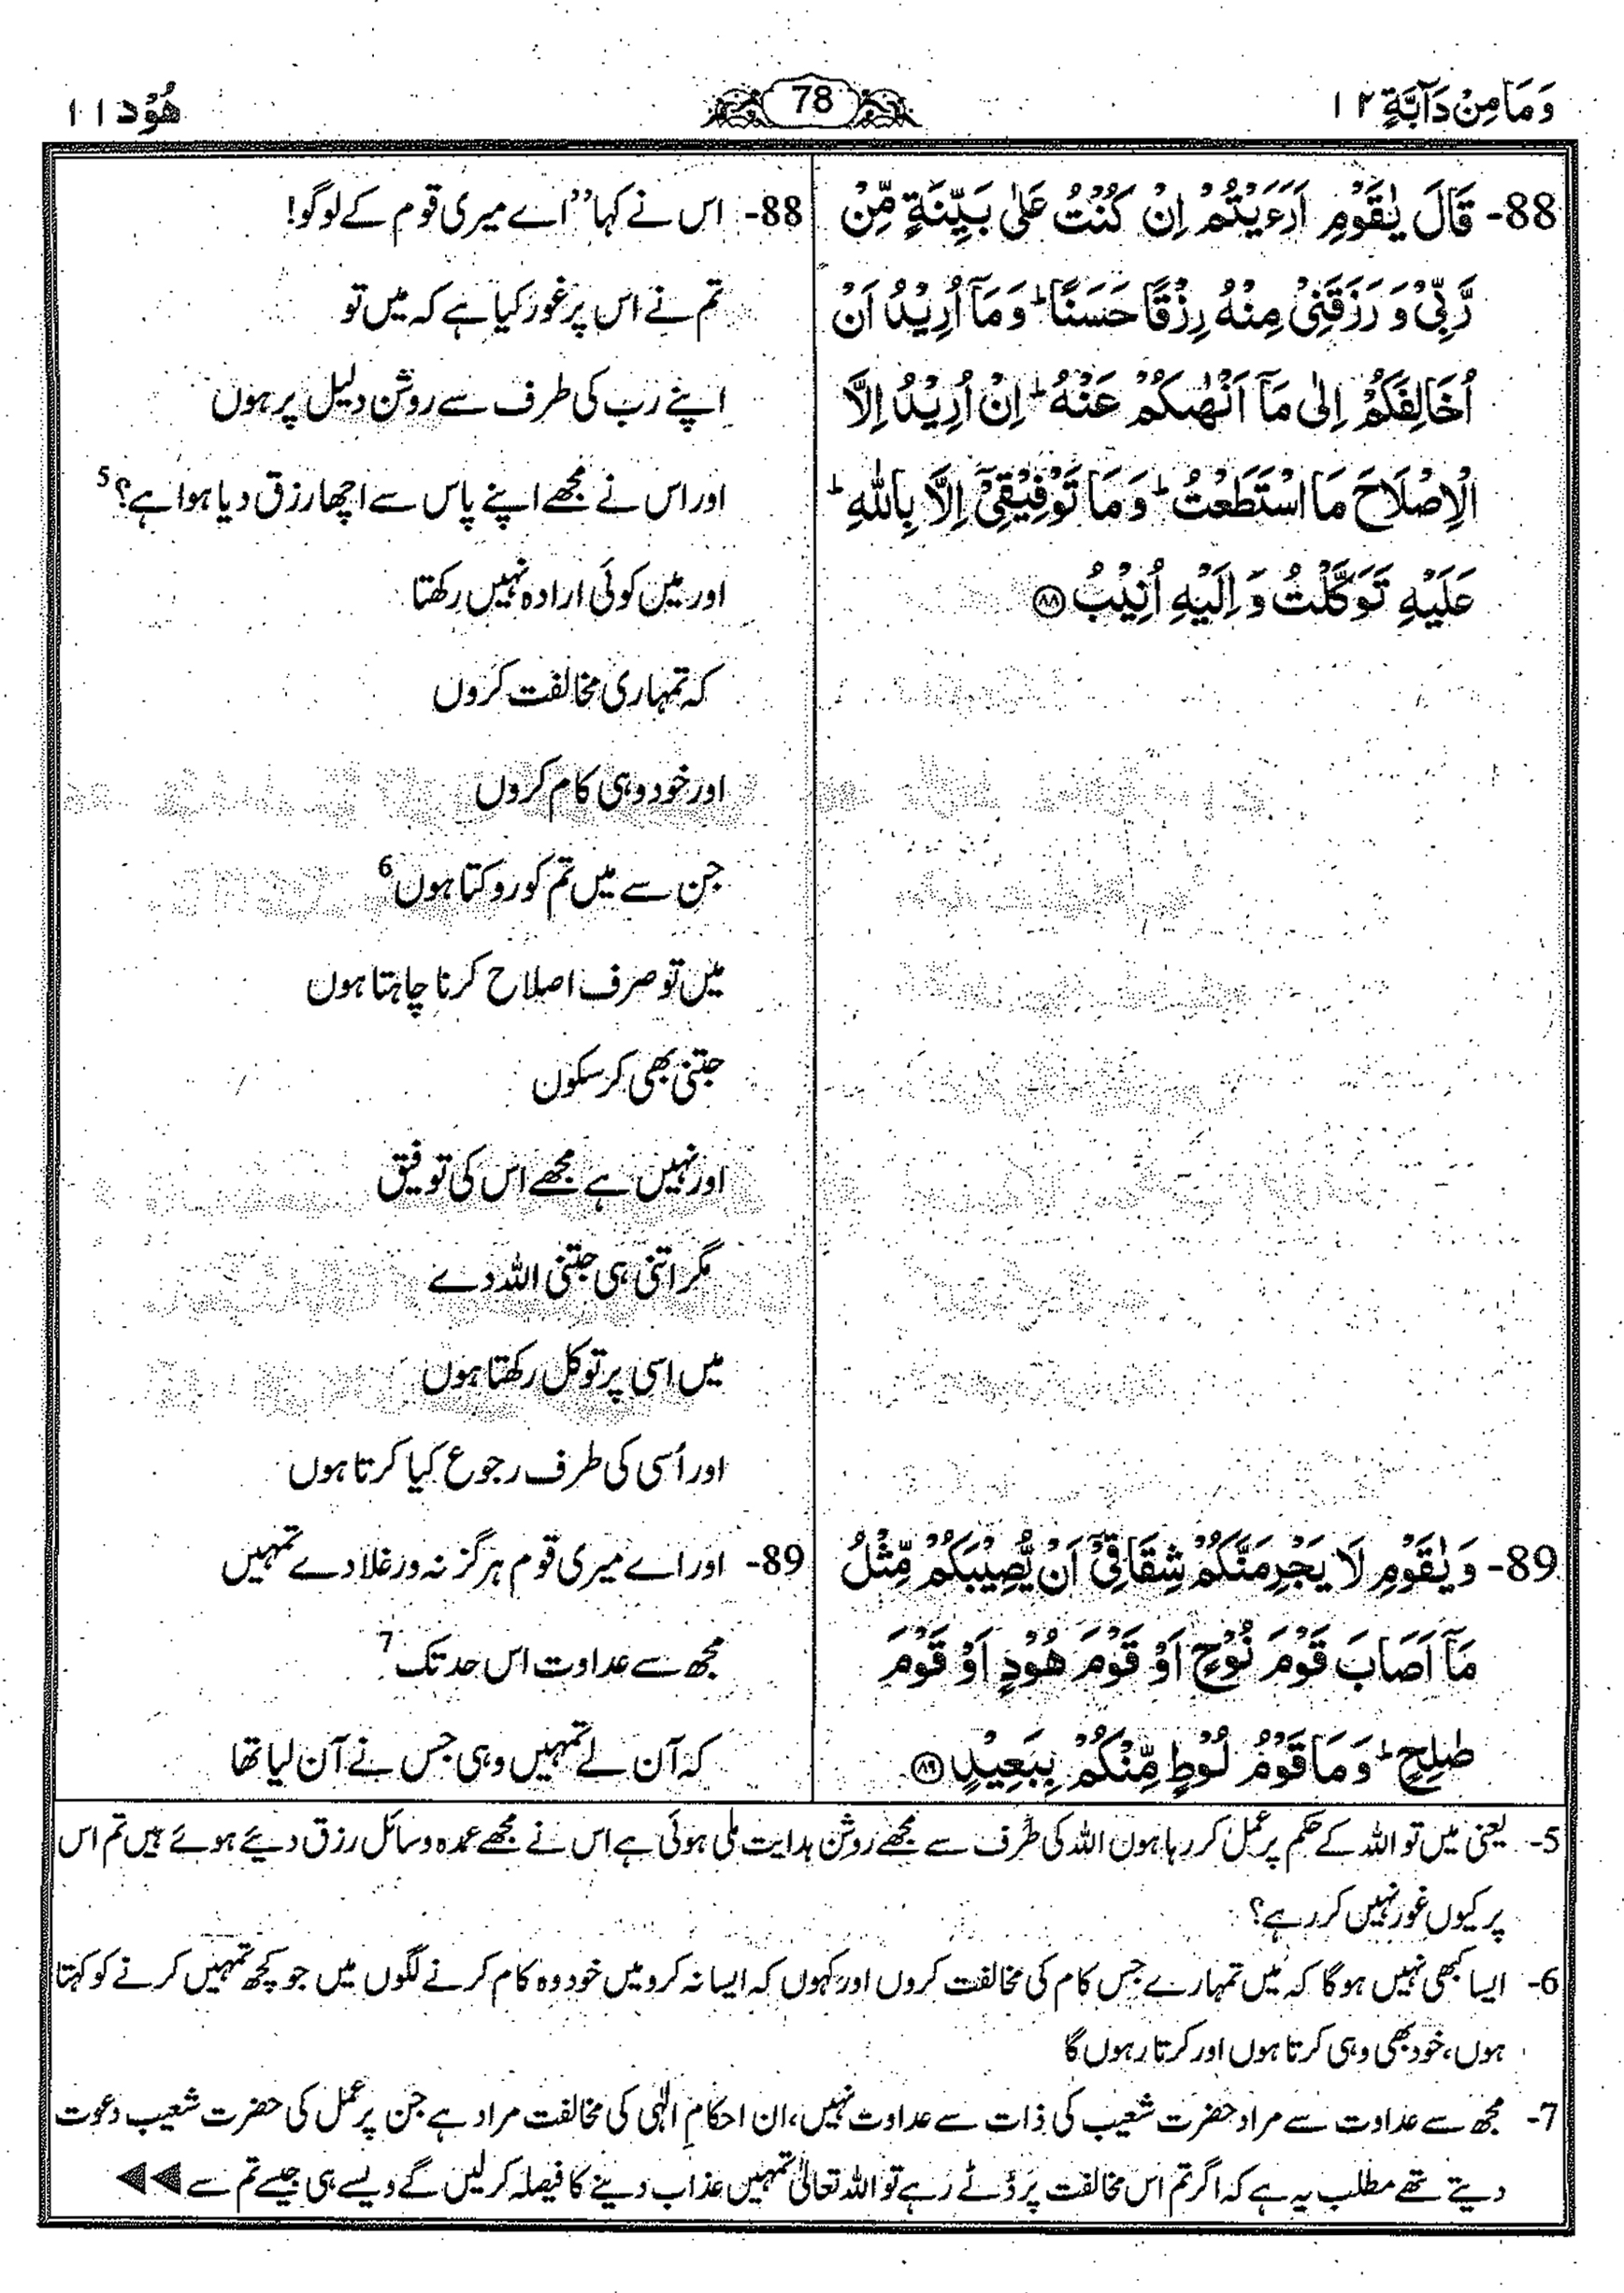 وَمَا مِنْ دَآبَّةٍ ۱۲
78
هُوْد ۱۱
88- قَالَ يٰقَوْمِ اَرَءَيْتُمْ اِنْ كُنْتُ عَلٰى بَيِّنَةٍ مِّنْ
رَّبِّىْ وَ رَزَقَنِىْ مِنْهُ رِزْقًا حَسَنًا ؕ وَ مَاۤ اُرِيْدُ اَنْ
اُخَالِفَكُمْ اِلٰى مَاۤ اَنْهٰىكُمْ عَنْهُ ؕ اِنْ اُرِيْدُ اِلَّا
الْاِصْلَاحَ مَا اسْتَطَعْتُ ؕ وَ مَا تَوْفِيْقِىْۤ اِلَّا بِاللّٰهِ ؕ
عَلَيْهِ تَوَكَّلْتُ وَ اِلَيْهِ اُنِيْبُ ۝۸۸
88- اس نے کہا ”اے میری قوم کے لوگو!
تم نے اس پر غور کیا ہے کہ میں تو
اپنے رب کی طرف سے روشن دلیل پر ہوں
اور اس نے مجھے اپنے پاس سے اچھا رزق دیا ہوا ہے؟ 5
اور میں کوئی ارادہ نہیں رکھتا
کہ تمہاری مخالفت کروں
اور خود وہی کام کروں
جن سے میں تم کو روکتا ہوں 6
میں تو صرف اصلاح کرنا چاہتا ہوں
جتنی بھی کر سکوں
اور نہیں ہے مجھے اس کی توفیق
مگر اتنی ہی جتنی اللہ دے
میں اسی پر توکل رکھتا ہوں
اور اُسی کی طرف رجوع کیا کرتا ہوں
89- وَ يٰقَوْمِ لَا يَجْرِمَنَّكُمْ شِقَاقِىْۤ اَنْ يُّصِيْبَكُمْ مِّثْلُ
مَاۤ اَصَابَ قَوْمَ نُوْحٍ اَوْ قَوْمَ هُوْدٍ اَوْ قَوْمَ
صٰلِحٍ ؕ وَ مَا قَوْمُ لُوْطٍ مِّنْكُمْ بِبَعِيْدٍ ۝۸۹
89- اور اے میری قوم ہرگز نہ ورغلا دے تمہیں
مجھ سے عداوت اس حد تک 7
کہ آن لے تمہیں وہی جس نے آن لیا تھا
5- یعنی میں تو اللہ کے حکم پر عمل کر رہا ہوں اللہ کی طرف سے مجھے روشن ہدایت ملی ہوئی ہے اس نے مجھے عمدہ وسائل رزق دیئے ہوئے ہیں تم اس
پر کیوں غور نہیں کر رہے؟
6- ایسا کبھی نہیں ہوگا کہ میں تمہارے جس کام کی مخالفت کروں اور کہوں کہ ایسا نہ کرو میں خود وہ کام کرنے لگوں میں جو کچھ تمہیں کرنے کو کہتا
ہوں، خود بھی وہی کرتا ہوں اور کرتا رہوں گا
7- مجھ سے عداوت سے مراد حضرت شعیب کی ذات سے عداوت نہیں، ان احکامِ الٰہی کی مخالفت مراد ہے جن پر عمل کی حضرت شعیب دعوت
دیتے تھے مطلب یہ ہے کہ اگر تم اس مخالفت پر ڈٹے رہے تو اللہ تعالیٰ تمہیں عذاب دینے کا فیصلہ کر لیں گے ویسے ہی جیسے تم سے ◀◀